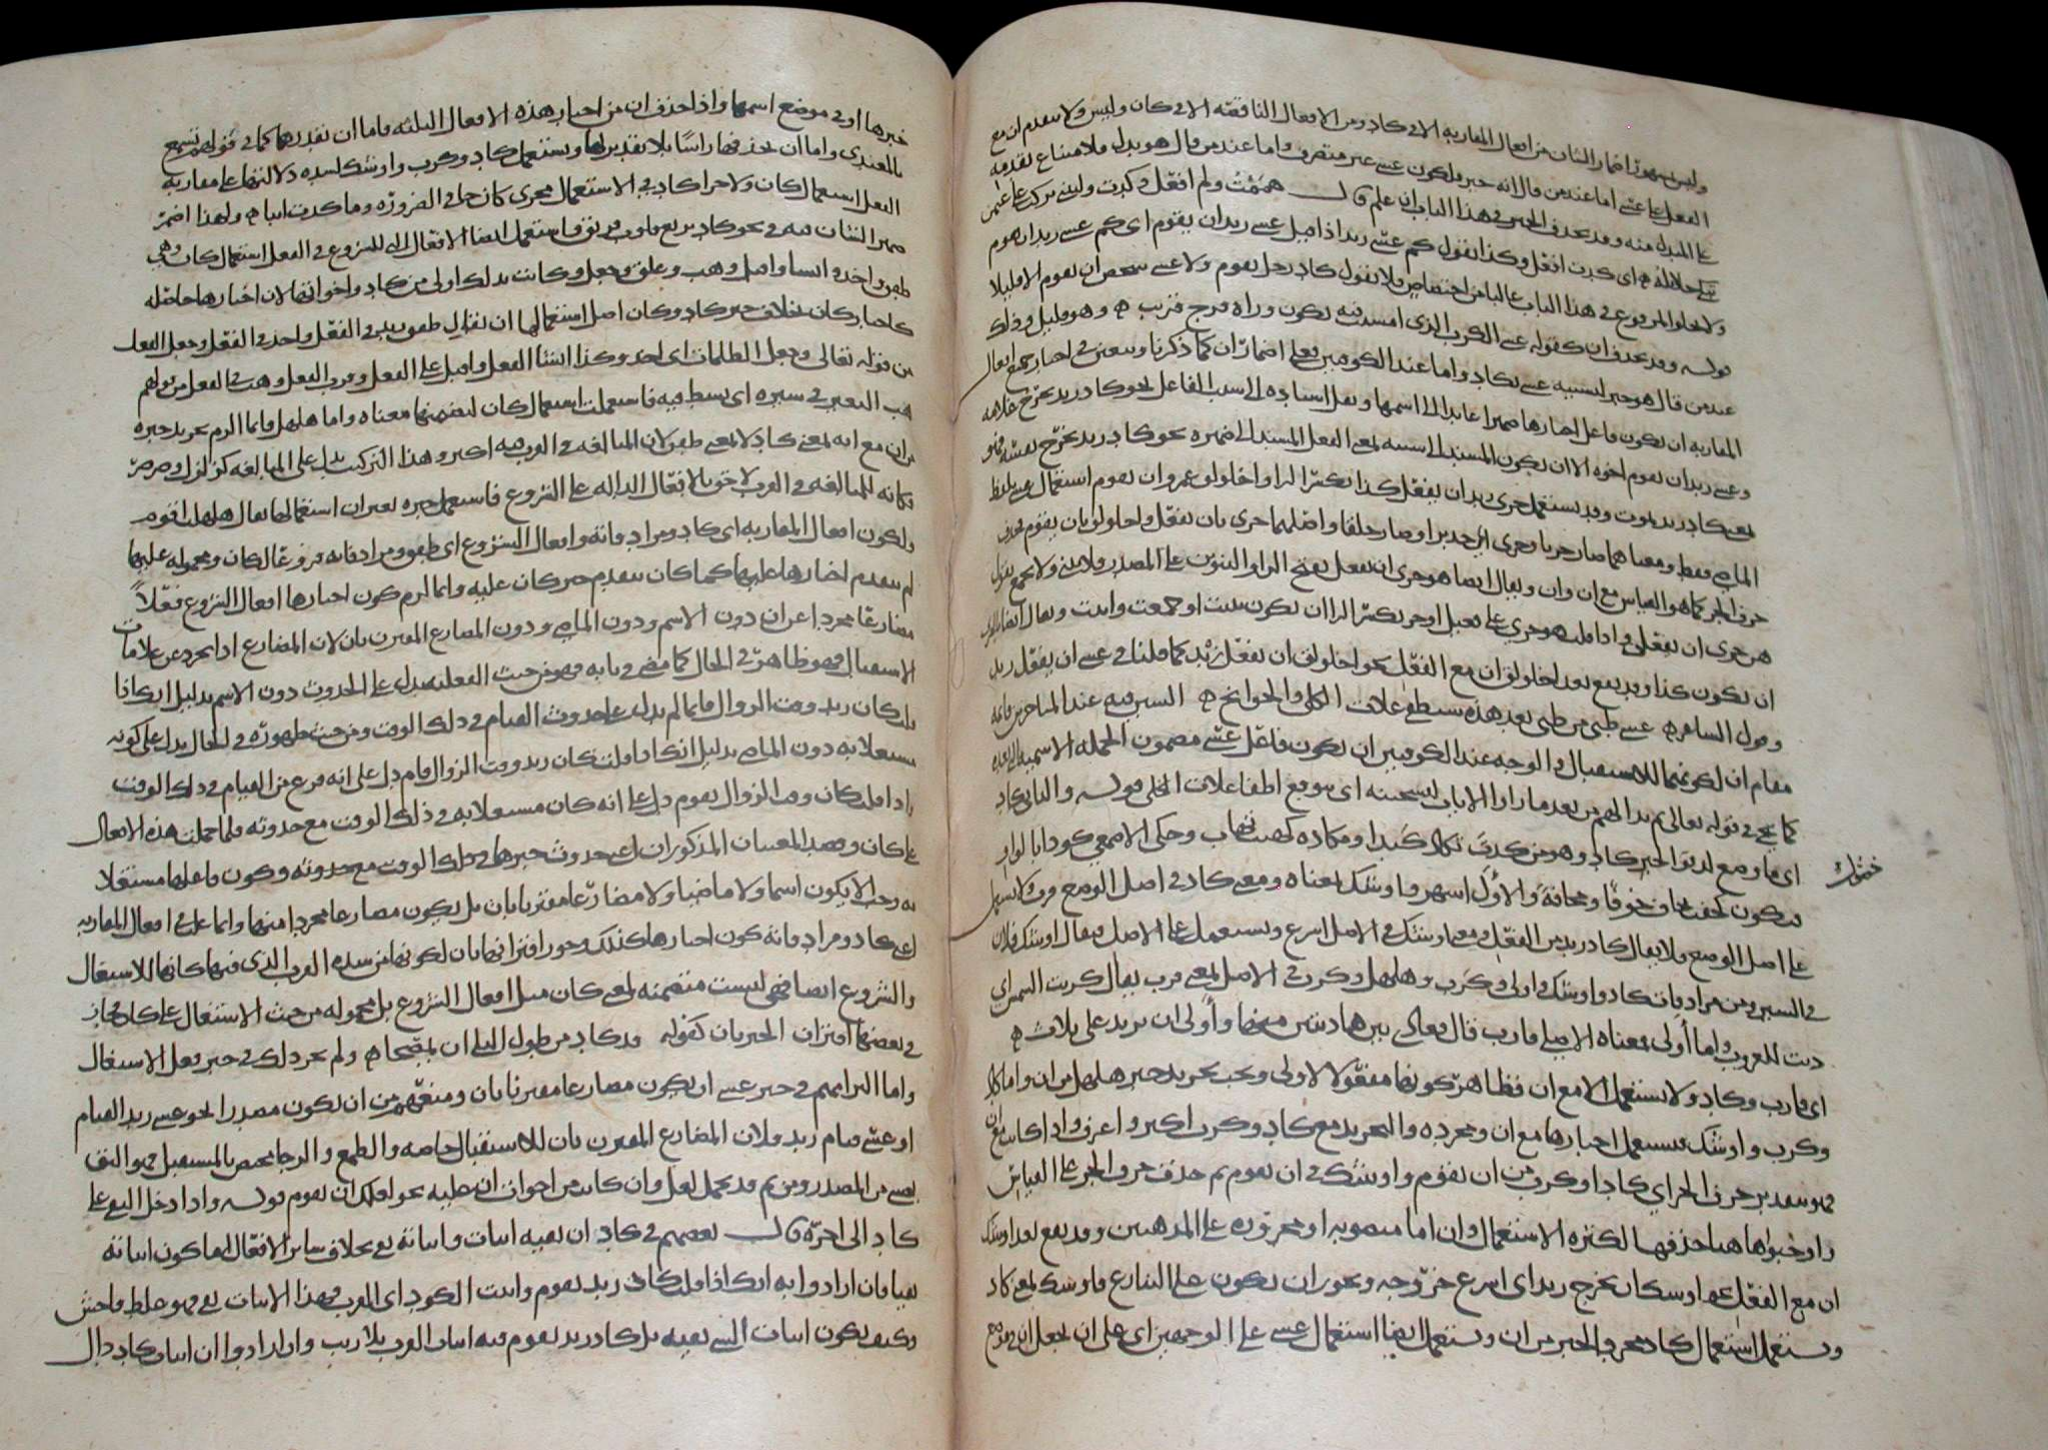 وليس بمشهور اضمار الشان من افعال المقاربة الا في كاد ومن الافعال الناقصة الا في كان وليس ولا يتقدم ان مع
الفعل على عسى اما عند من قال انه خبر فلكون عسى غير متصرف واما عند من قال هو بدل فلامتناع تقدمه
على المبدل منه وقد يحذف الخبر في هذا الباب ان علم قال هممت ولم افعل وكدت وليتني تركت على عثمن
تبكي حلائله اي كدت افعل وكذا تقول كم عسى زيد اذا قيل عسى زيد ان يقوم اي كم عسى زيد ان يقوم
ولا يخلو المرفوع في هذا الباب غالبا من اختصاص فلا تقول كاد رجل يقوم ولا عسى شخص ان يقوم الا قليلا
قوله وقد يحذف ان كقوله عسى الكرب الذي امسيت فيه يكون وراه فرج قريب وهو قليل وذلك
عند من قال هو خبر لتشبيه عسى بكاد واما عند الكوفيين فعلى اضمار ان كما ذكرنا ويتعين في اخبار جميع افعال
المقاربة ان يكون فاعل اخبارها ضميرا عائدا الى اسمها ويقل اسناده الى سبب الفاعل نحو كاد زيد يخرج غلامه
وعسى زيد ان يقوم اخوه الا ان يكون المسند الى سببه بمعنى الفعل المسند الى ضميره نحو كاد زيد تخرج نفسه فهو
بمعنى كاد زيد يموت وقد يستعمل حرى زيد ان يفعل كذا بكسر الرا واخلولق عمرو ان يقوم استعمال عسى بلفظ
الماضي فقط ومعناهما صار حريا وحرى اي جديرا وصار خليقا واصلهما حرى بان يفعل واخلولق بان يقوم فحذف
حرف الجر كما هو القياس مع ان وان ويقال ايضا هو حرى ان يفعل بفتح الرا والتنوين على المصدر فلا يثنى ولا يجمع تقول
هن حرى ان يفعلن واذا قلت هو حري على فعيل او حر بكسر الرا ان يكون ثنيت او جمعت وانثت ويقال ايضا
ان يكون كذا وقد يقع بعد اخلولق ان مع الفعل نحو اخلولق ان يفعل زيد كما قلنا في عسى ان يفعل زيد
وقول الشاعر عسى طيئ من طيئ بعد هذه ستطفئ غلات الكلى والجوانح السين فيه عند المتاخرين قائمة
مقام ان لكونهما للاستقبال والوجه عند الكوفيين ان يكون فاعل عسى مضمون الجملة الاسمية
كما يجئ في قوله تعالى ثم بدا لهم من بعد ما راوا الايات ليسجننه اي يتوقع اطفا غلات الكلى قوله والثاني كاد
اي ما وضع لدنو الخبر كاد وهو من كدت تكاد كيدا ومكادة كهبت تهاب وحكى الاصمعي كودا بالواو
فيكون كخفت تخاف خوفا ومخافة والاول اشهر واوشك بمعناه ومعنى كاد في اصل الوضع قرب ولا يستعمل
على اصل الوضع فلا يقال كاد زيد من الفعل ومعنى اوشك في الاصل اسرع ويستعمل على الاصل فيقال اوشك فلان
في السير ومن مرادفات كاد واوشك واولى وكرب وهلهل وكرب في الاصل بمعنى قرب يقال كربت الشمس اي
دنت للغروب واما اولى فمعناه الاصلي قارب قال فعادى بين هاديتين منها واولى ان يزيد على ثلاث
اي قارب وكاد ولا يستعمل الا مع ان فظاهر كونها مفعولا لاولى ويجب تجريد خبر هلهل من ان واما كاد
وكرب واوشك فيستعمل اخبارها مع ان ومجردة والتجريد مع كاد وكرب اكثر واعرف واذا كانت مع ان
فهو بتقدير حرف الجر اي كاد او كرب من ان يقوم واوشك في ان يقوم ثم حذف حرف الجر على القياس
واوجبوا ها هنا حذفها لكثرة الاستعمال وان اما منصوبة او مجرورة على المذهبين وقد يقع بعد اوشك
ان مع الفعل نحو اوشك ان يخرج زيد اي اسرع خروجه ويجوز ان يكون على التنازع واوشك بمعنى كاد
ويستعمل استعمال كاد بتجريد الخبر من ان ويستعمل ايضا استعمال عسى على الوجهين اي على ان يجعل ان في موضع
خبرها او في موضع اسمها واذا حذف ان من اخبار هذه الافعال الثلثة فاما ان نقدرها كما في قولهم تسمع
بالمعيدي واما ان نحذفها راسا بلا تقدير لها ونستعمل كاد وكرب واوشك لشدة دلالتها على مقاربة
الفعل استعمال كان ولاجرا كاد في الاستعمال مجرى كان جا في الضرورة وما كدت ايبا ولهذا اضمر
ضمير الشان فيه في نحو كاد يزيغ قلوب فريق فاستعمل ايضا الافعال التي للشروع في الفعل استعمال كان وهي
طفق واخذ وانشا واقبل وهب وعلق وجعل وكانت بذلك اولى من كاد واخواتها لان اخبارها حاصلة
كاخبار كان بخلاف خبر كاد وكان اصل استعمالها ان يقال طفق زيد في الفعل واخذ في الفعل وجعل الفعل
من قوله تعالى وجعل الظلمات اي اوجد وكذا انشا الفعل واقبل على الفعل وقرب الفعل وهب في الفعل من قولهم
هب البعير في سيره اي نشط فيه فاستعملت استعمال كان لتضمنها معناه واما هلهل فانما الزم تجريد خبره
من ان مع انه بمعنى كاد لا بمعنى طفق لان المبالغة في القرب فيه اكثر وهذا التركيب يدل على المبالغة كزلزل وصرصر
فكانه للمبالغة في القرب لاحق بالافعال الدالة على الشروع فاستعمل خبره بغير ان استعمالها يقال هلهلت اقوم
ولكون افعال المقاربة اي كاد ومرادفاته وافعال الشروع اي طفق ومرادفاته فروعا لكان ومحمولة عليها
لم يتقدم اخبارها عليها كما كان يتقدم خبر كان عليه وانما لزم كون اخبارها افعال الشروع فعلا
مضارعا مجردا عن ان دون الاسم ودون الماضي ودون المضارع المقترن بان لان المضارع اذا تجرد عن علامات
الاستقبال فهو ظاهر في الحال كما مضى في بابه فهو من حيث الفعلية يدل على الحدوث دون الاسم بدليل انك اذا
قلت كان زيد وقت الزوال قائما لم يدل على حدوث القيام في ذلك الوقت ومن حيث ظهوره في الحال يدل على كونه
مشتغلا به دون الماضي بدليل انك اذا قلت كان زيد وقت الزوال قام دل على انه فرغ من القيام في ذلك الوقت
واذا قلت كان وقت الزوال يقوم دل على انه كان مشتغلا به في ذلك الوقت مع حدوثه فلما حملت هذه الافعال
على كان وقصد المعنيان المذكوران اعني حدوث خبرها في ذلك الوقت مع حدوثه وكون فاعلها مشتغلا
به وجب الا يكون اسما ولا ماضيا ولا مضارعا مقترنا بان بل يكون مضارعا مجردا منها واما على في افعال المقاربة
اعني كاد ومرادفاته كون اخبارها كذلك وجوز اقترانها بان لكونها من شدة القرب الذي فيها كانها للاشتغال
والشروع ايضا فهي ليست متضمنة لمعنى كان مثل افعال الشروع بل محمولة من حيث الاشتغال على كان فجاز
في بعضها اقتران الخبر بان كقوله قد كاد من طول البلى ان يمصحا ولم يجز ذلك في خبر فعل الاشتغال
واما التزامهم في خبر عسى ان يكون مضارعا مقترنا بان ومنعهم من ان يكون مصدرا نحو عسى زيد القيام
او عسى قيام زيد فلان المضارع المقترن بان للاستقبال خاصة والطمع والرجا مختص بالمستقبل فهو اليق
بعسى من المصدر ومن ثم قد يحمل لعل وان كانت من اخوات ان عليه نحو لعلك ان تقوم قوله واذا دخل النفي على
كاد الى اخره قال بعضهم في كاد ان نفيه اثبات واثباته نفي بخلاف سائر الافعال اما كون اثباته
نفيا فان ارادوا به انك اذا قلت كاد زيد يقوم واثبت الكود اي القرب فهذا الاثبات نفي فهو غلط فاحش
وكيف يكون اثبات الشي نفيه بل كاد زيد يقوم فيه اثبات القرب بلا ريب وان ارادوا ان اثبات كاد دال